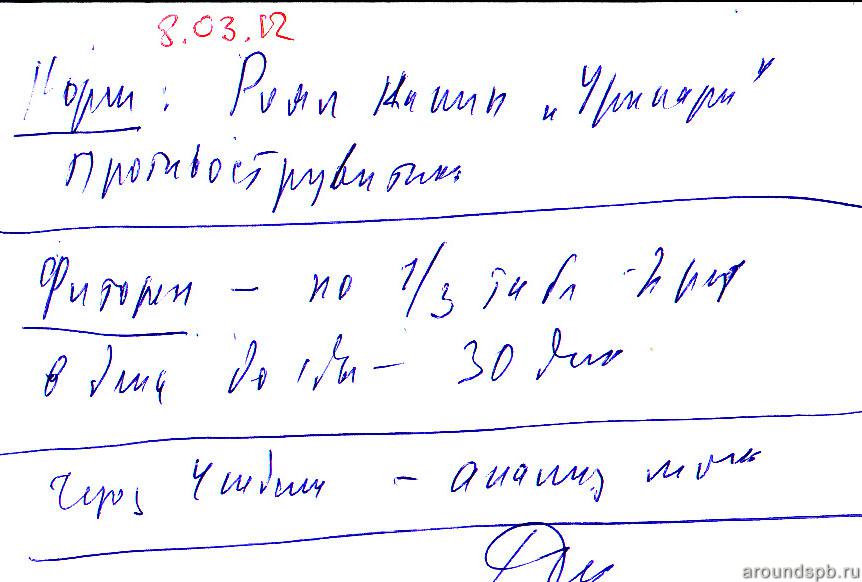 8.03.12
Корм: Роял Канин "Уринари"
противострувитн.
Фиторен – по 1/3 табл – 2 раза
в день до еды – 30 дней
Через 4 недели – анализ мочи
aroundspb.ru